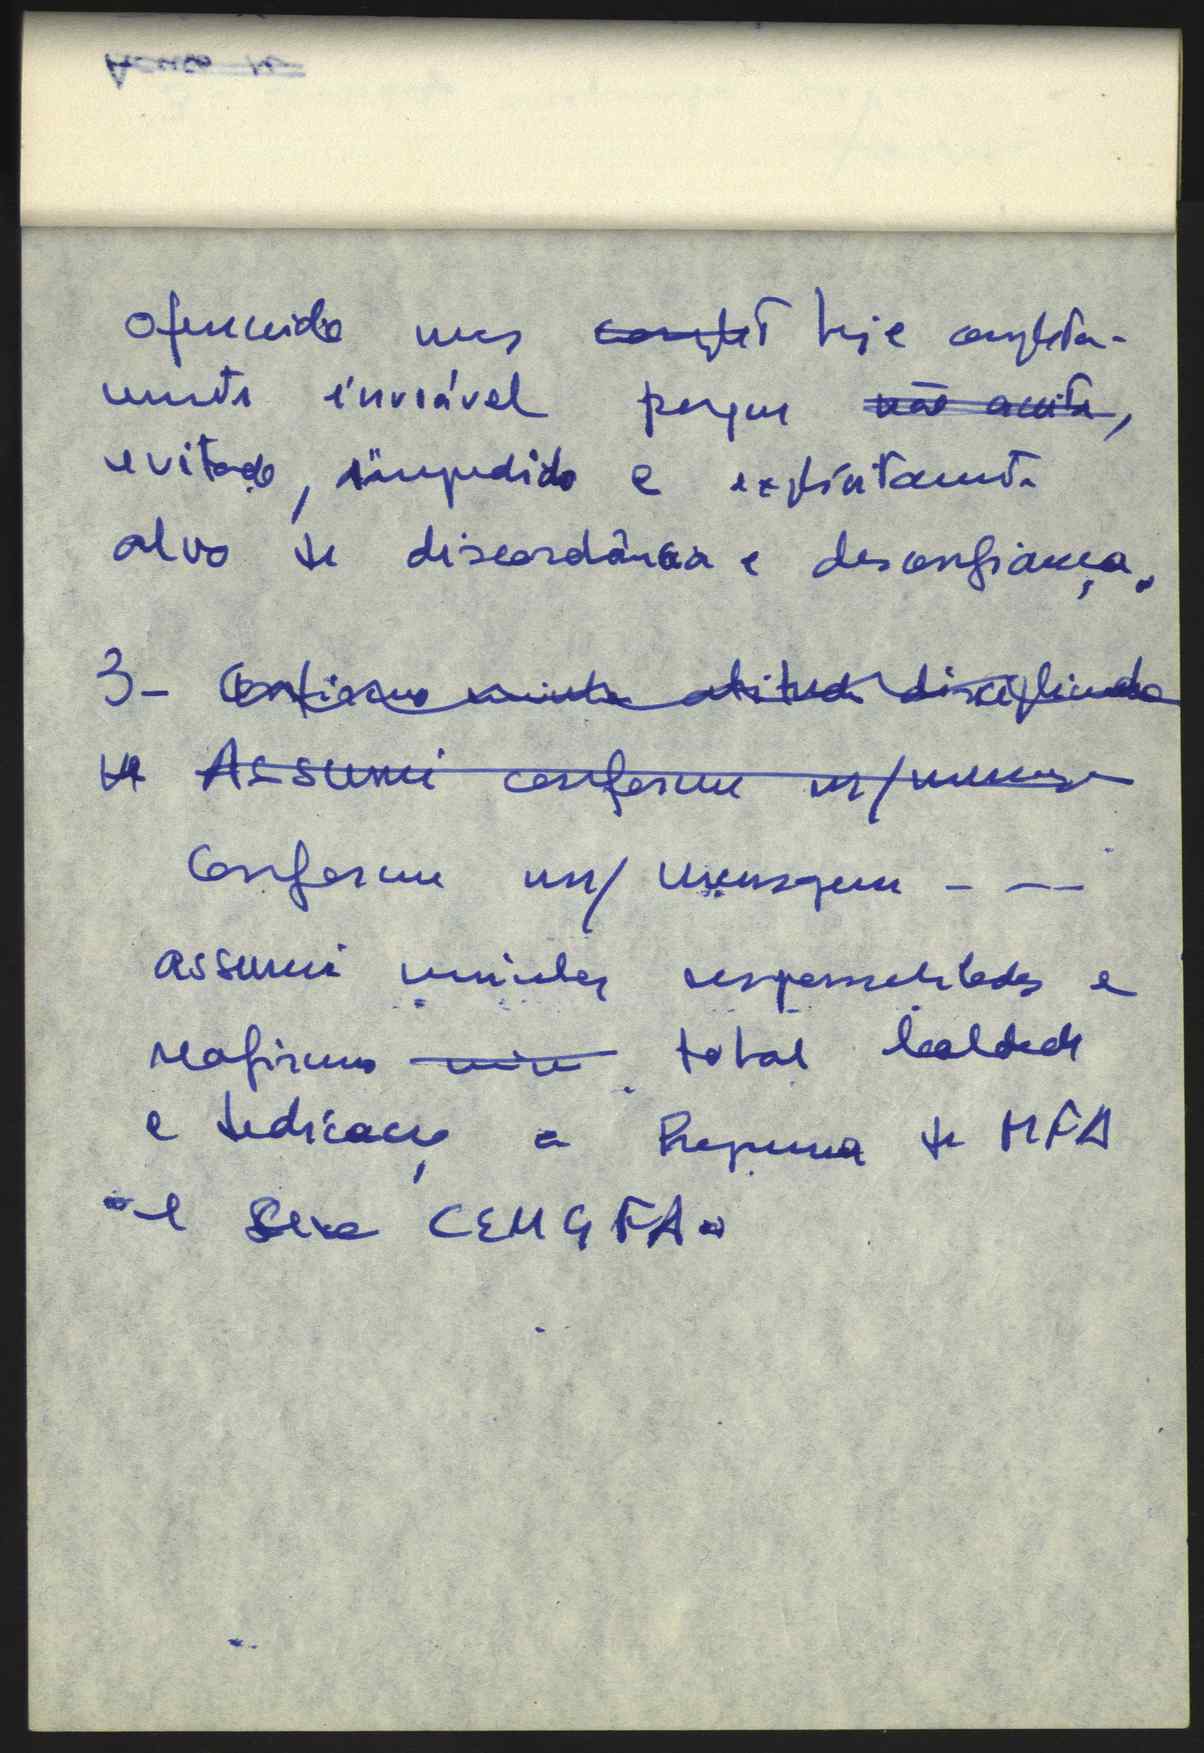 oferecido mas complet hoje completa-
mente inviável porque não aceite,
evitado, impedido e explicitamente
alvo de discordância e desconfiança.
3- Confirmo minha atitude disciplinada
Assumi conforme m/ mensagem
Conforme m/ mensagem - --
assumi minhas responsabilidades e
reafirmo total lealdade
e dedicação a Programa do MFA
e CEMGFA.